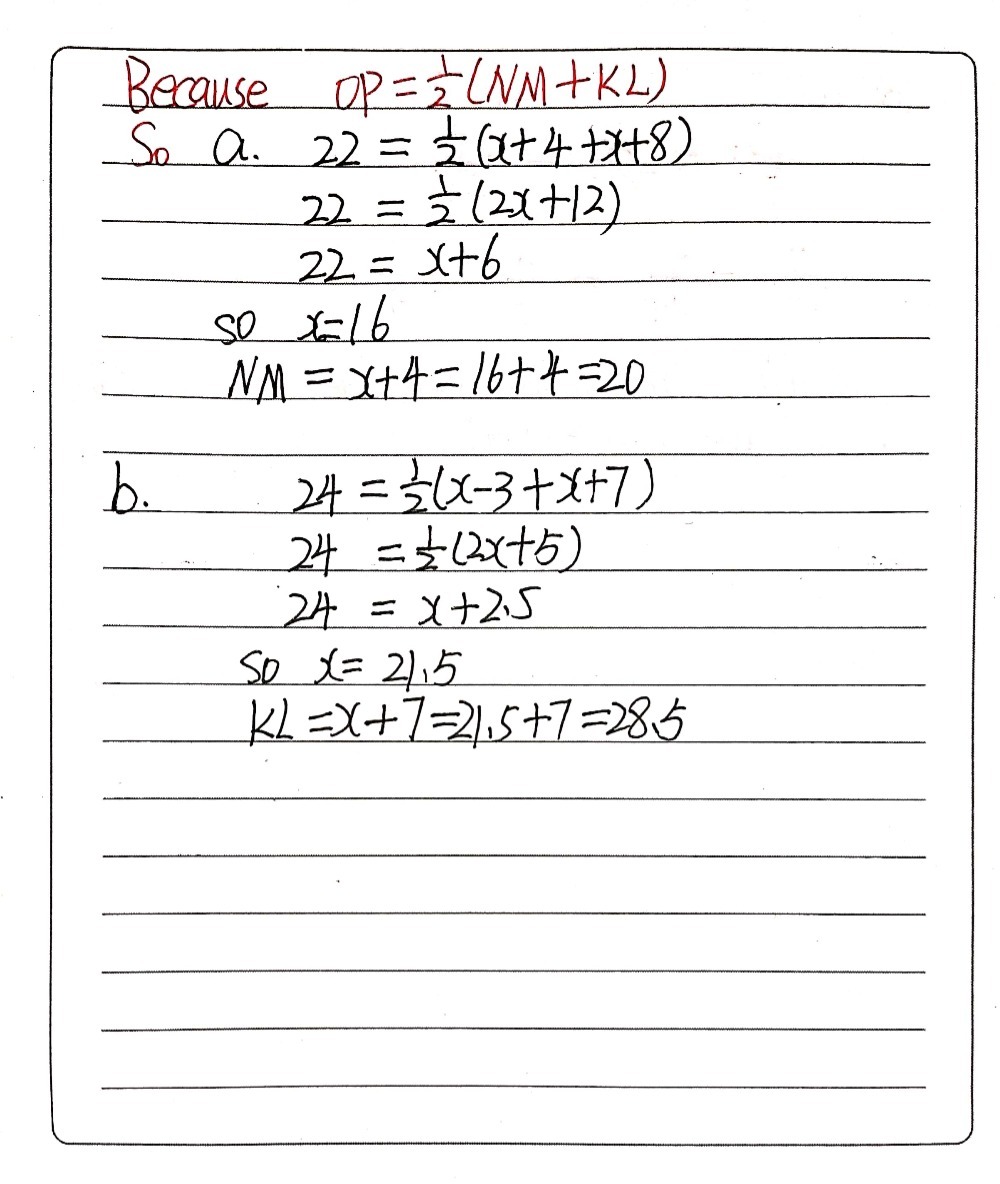 Because OP = ½(NM+KL)
So a. 22 = ½(x+4+x+8)
22 = ½(2x+12)
22 = x+6
so x=16
NM = x+4 = 16+4 =20
b. 24 = ½(x-3+x+7)
24 = ½(2x+5)
24 = x+2.5
so x= 21.5
KL =x+7=21.5+7=28.5